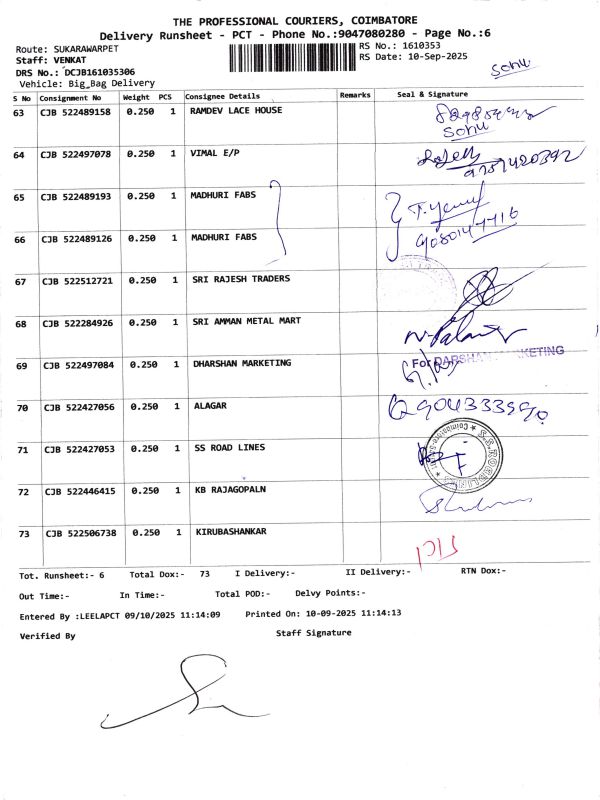 THE PROFESSIONAL COURIERS, COIMBATORE
Delivery Runsheet - PCT - Phone No.:9047080280 - Page No.:6
Route: SUKARAWARPET
RS No.: 1610353
Staff: VENKAT
RS Date: 10-Sep-2025
DRS No.: DCJB161035306
Vehicle: Big_Bag Delivery
sonu
S No Consignment No Weight PCS Consignee Details Remarks Seal & Signature
63 CJB 522489158 0.250 1 RAMDEV LACE HOUSE
sonu
64 CJB 522497078 0.250 1 VIMAL E/P
9751420392
65 CJB 522489193 0.250 1 MADHURI FABS
66 CJB 522489126 0.250 1 MADHURI FABS
67 CJB 522512721 0.250 1 SRI RAJESH TRADERS
68 CJB 522284926 0.250 1 SRI AMMAN METAL MART
69 CJB 522497084 0.250 1 DHARSHAN MARKETING
For DARSHAN MARKETING
70 CJB 522427056 0.250 1 ALAGAR
71 CJB 522427053 0.250 1 SS ROAD LINES
72 CJB 522446415 0.250 1 KB RAJAGOPALN
73 CJB 522506738 0.250 1 KIRUBASHANKAR
Tot. Runsheet:- 6 Total Dox:- 73 I Delivery:- II Delivery:- RTN Dox:-
Out Time:- In Time:- Total POD:- Delvy Points:-
Entered By :LEELAPCT 09/10/2025 11:14:09 Printed On: 10-09-2025 11:14:13
Verified By Staff Signature